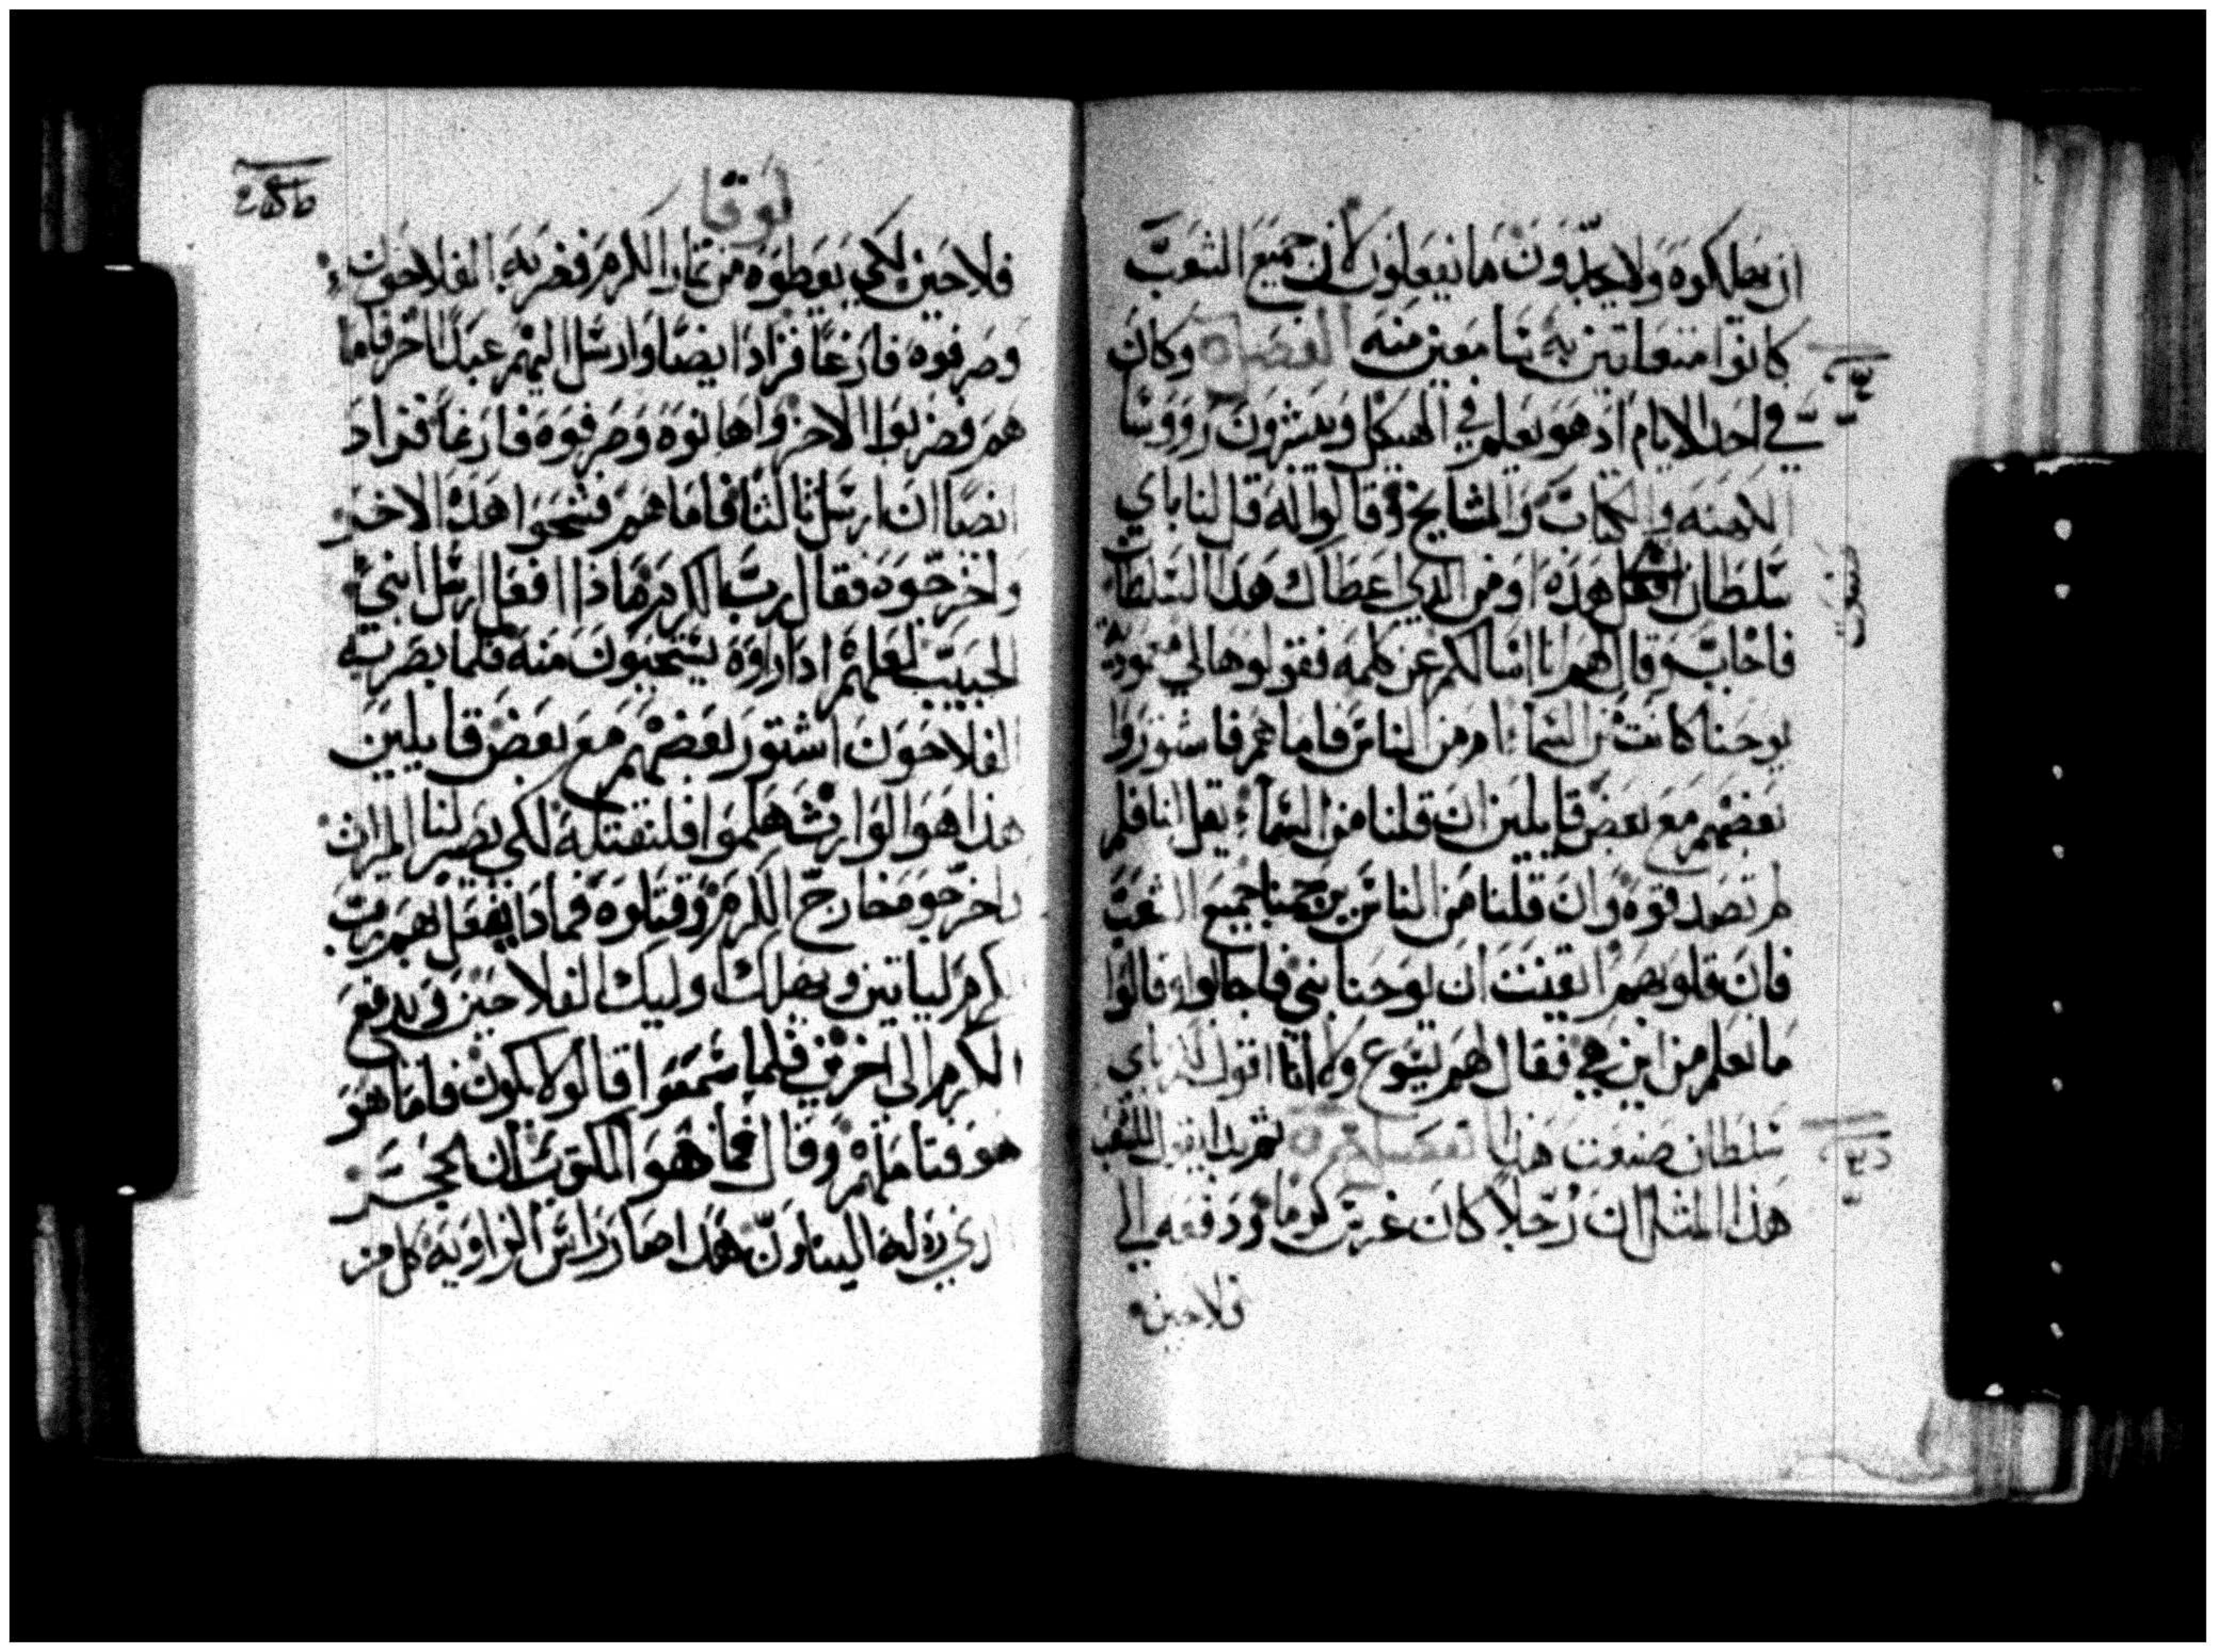 ان يهلكوه ولا يجدون ما يفعلون لان جميع الشعب
كانوا متعلقين به سامعين منه الفصل وكان
في احد الايام اذ هو يعلم في الهيكل ويبشرون رووسا
الكهنه والكتاب والمشايخ وقالوا له قل لنا باي
سلطان تفعل هذه او من الذي اعطاك هذا السلطان
فاجاب وقال لهم انا اسالكم عن كلمه فقولوها لي
يوحنا كانت من السماء ام من الناس فاما هم فاستوروا
بعضهم مع بعض قايلين ان قلنا من السماء يقل لنا فلم
لم تصدقوه وان قلنا من الناس يرجمنا جميع الشعب
فان قلوبهم اتقنت ان يوحنا نبي فاجابوا وقالوا
ما نعلم من اين هي فقال لهم يسوع ولا انا اقول لكم باي
سلطان صنعت هذا ثم بدا يقول للشعب
هذا المثل ان رجلا كان غرس كرما ودفعه الي
فلاحين
لوقا
فلاحين لكي يعطوه من ثمار الكرم فضربه الفلاحون
وصرفوه فارغا فزاد ايضا وارسل اليهم عبدا اخر فاما
هم فضربوا الاخر واهانوه وصرفوه فارغا فزاد
ايضا ان ارسل ثالثا فاما هم فشجوا هذا الاخر
واخرجوه فقال رب الكرم ماذا افعل ارسل ابني
الحبيب لعلهم اذا راوه يستحيون منه فلما بصر به
الفلاحون اشتور بعضهم مع بعض قايلين
هذا هو الوارث هلموا فلنقتله لكي يصير لنا الميراث
فاخرجوه خارج الكرم وقتلوه فماذا يفعل بهم رب
الكرم لياتين ويهلك اوليك الفلاحين ويدفع
الكرم الى اخرين فلما سمعوا قالو لا يكون فاما هو
هو فتاملهم وقال فما هو المكتوب ان الحجر
الذي رذله البناون هذا صار راس الزاويه كل من